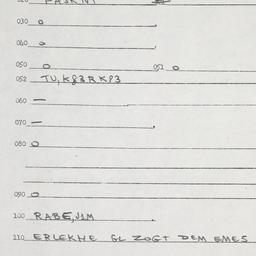 030 0
040 0
050 0 051 0
052 TU, K83RKP3
060 —
070 —
080 0
090 0
100 RABE, JIM
110 ERLEKHE GL ZOGT DEM EMES